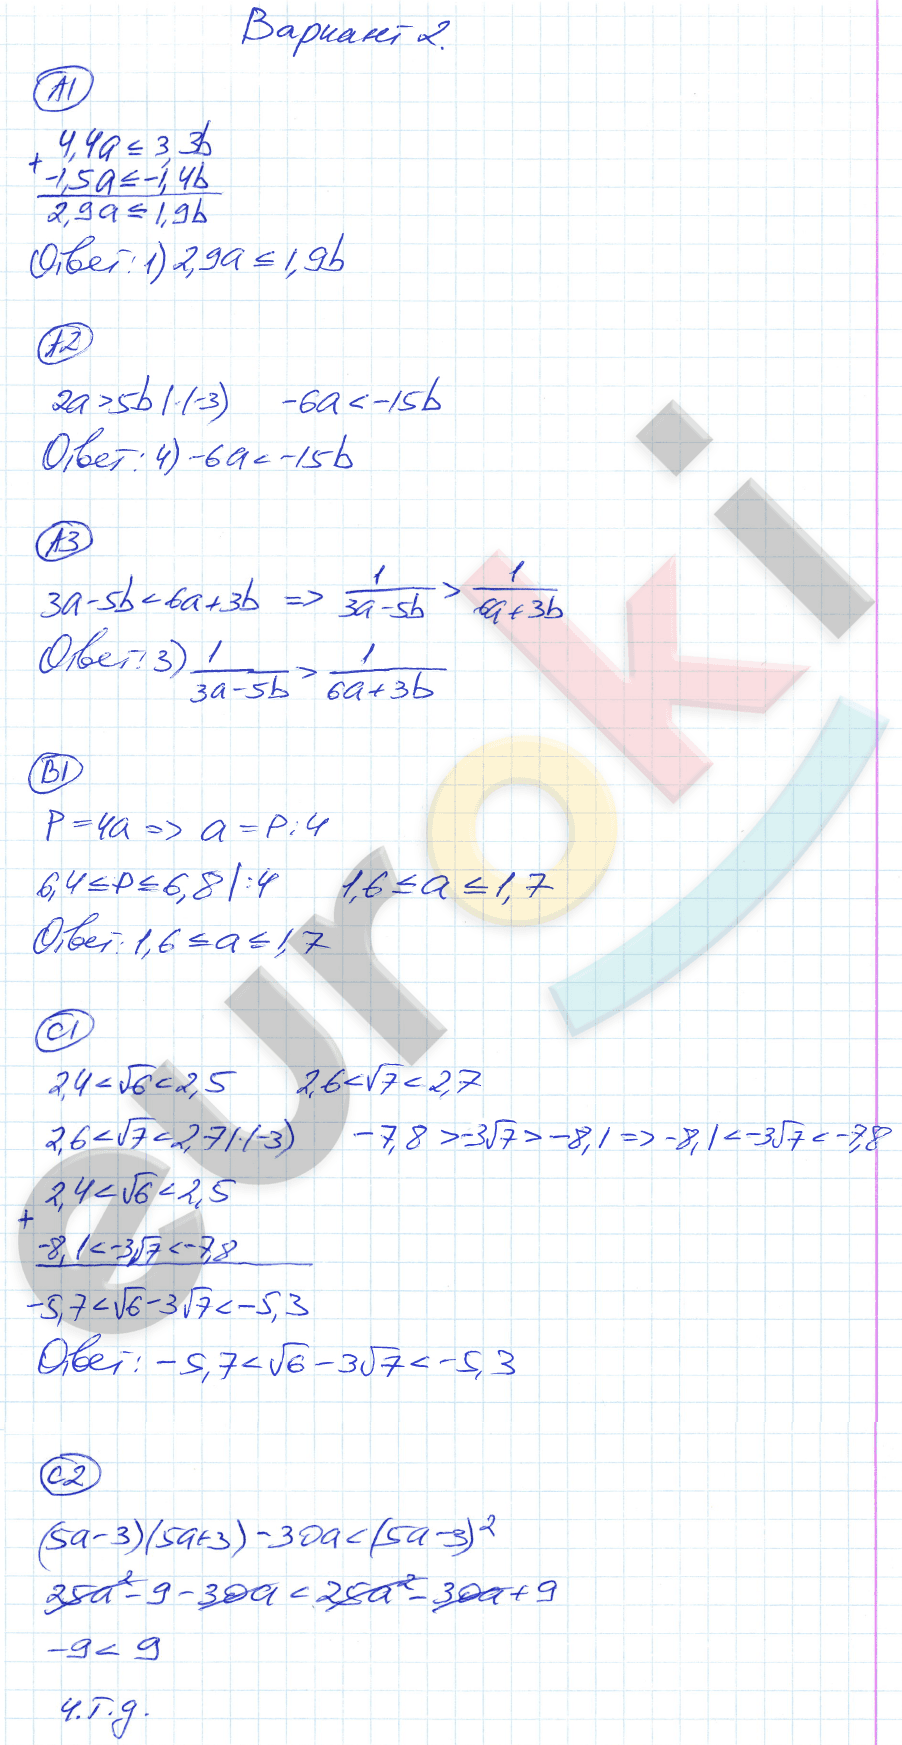 Вариант 2.
А1
4,4a ≤ 3,3b
+
-1,5a ≤ -1,4b
2,9a ≤ 1,9b
Ответ: 1) 2,9a ≤ 1,9b
А2
2a > 5b | ·(-3)   -6a < -15b
Ответ: 4) -6a < -15b
А3
3a-5b < 6a+3b => 1/(3a-5b) > 1/(6a+3b)
Ответ: 3) 1/(3a-5b) > 1/(6a+3b)
В1
P = 4a => a = P:4
6,4 ≤ P ≤ 6,8 | :4   1,6 ≤ a ≤ 1,7
Ответ: 1,6 ≤ a ≤ 1,7
С1
2,4 < √6 < 2,5   2,6 < √7 < 2,7
2,6 < √7 < 2,7 | ·(-3)   -7,8 > -3√7 > -8,1 => -8,1 < -3√7 < -7,8
2,4 < √6 < 2,5
+
-8,1 < -3√7 < -7,8
-5,7 < √6 - 3√7 < -5,3
Ответ: -5,7 < √6 - 3√7 < -5,3
С2
(5a-3)(5a+3) - 30a < (5a-3)²
25a² - 9 - 30a < 25a² - 30a + 9
-9 < 9
ч.т.д.
euroki